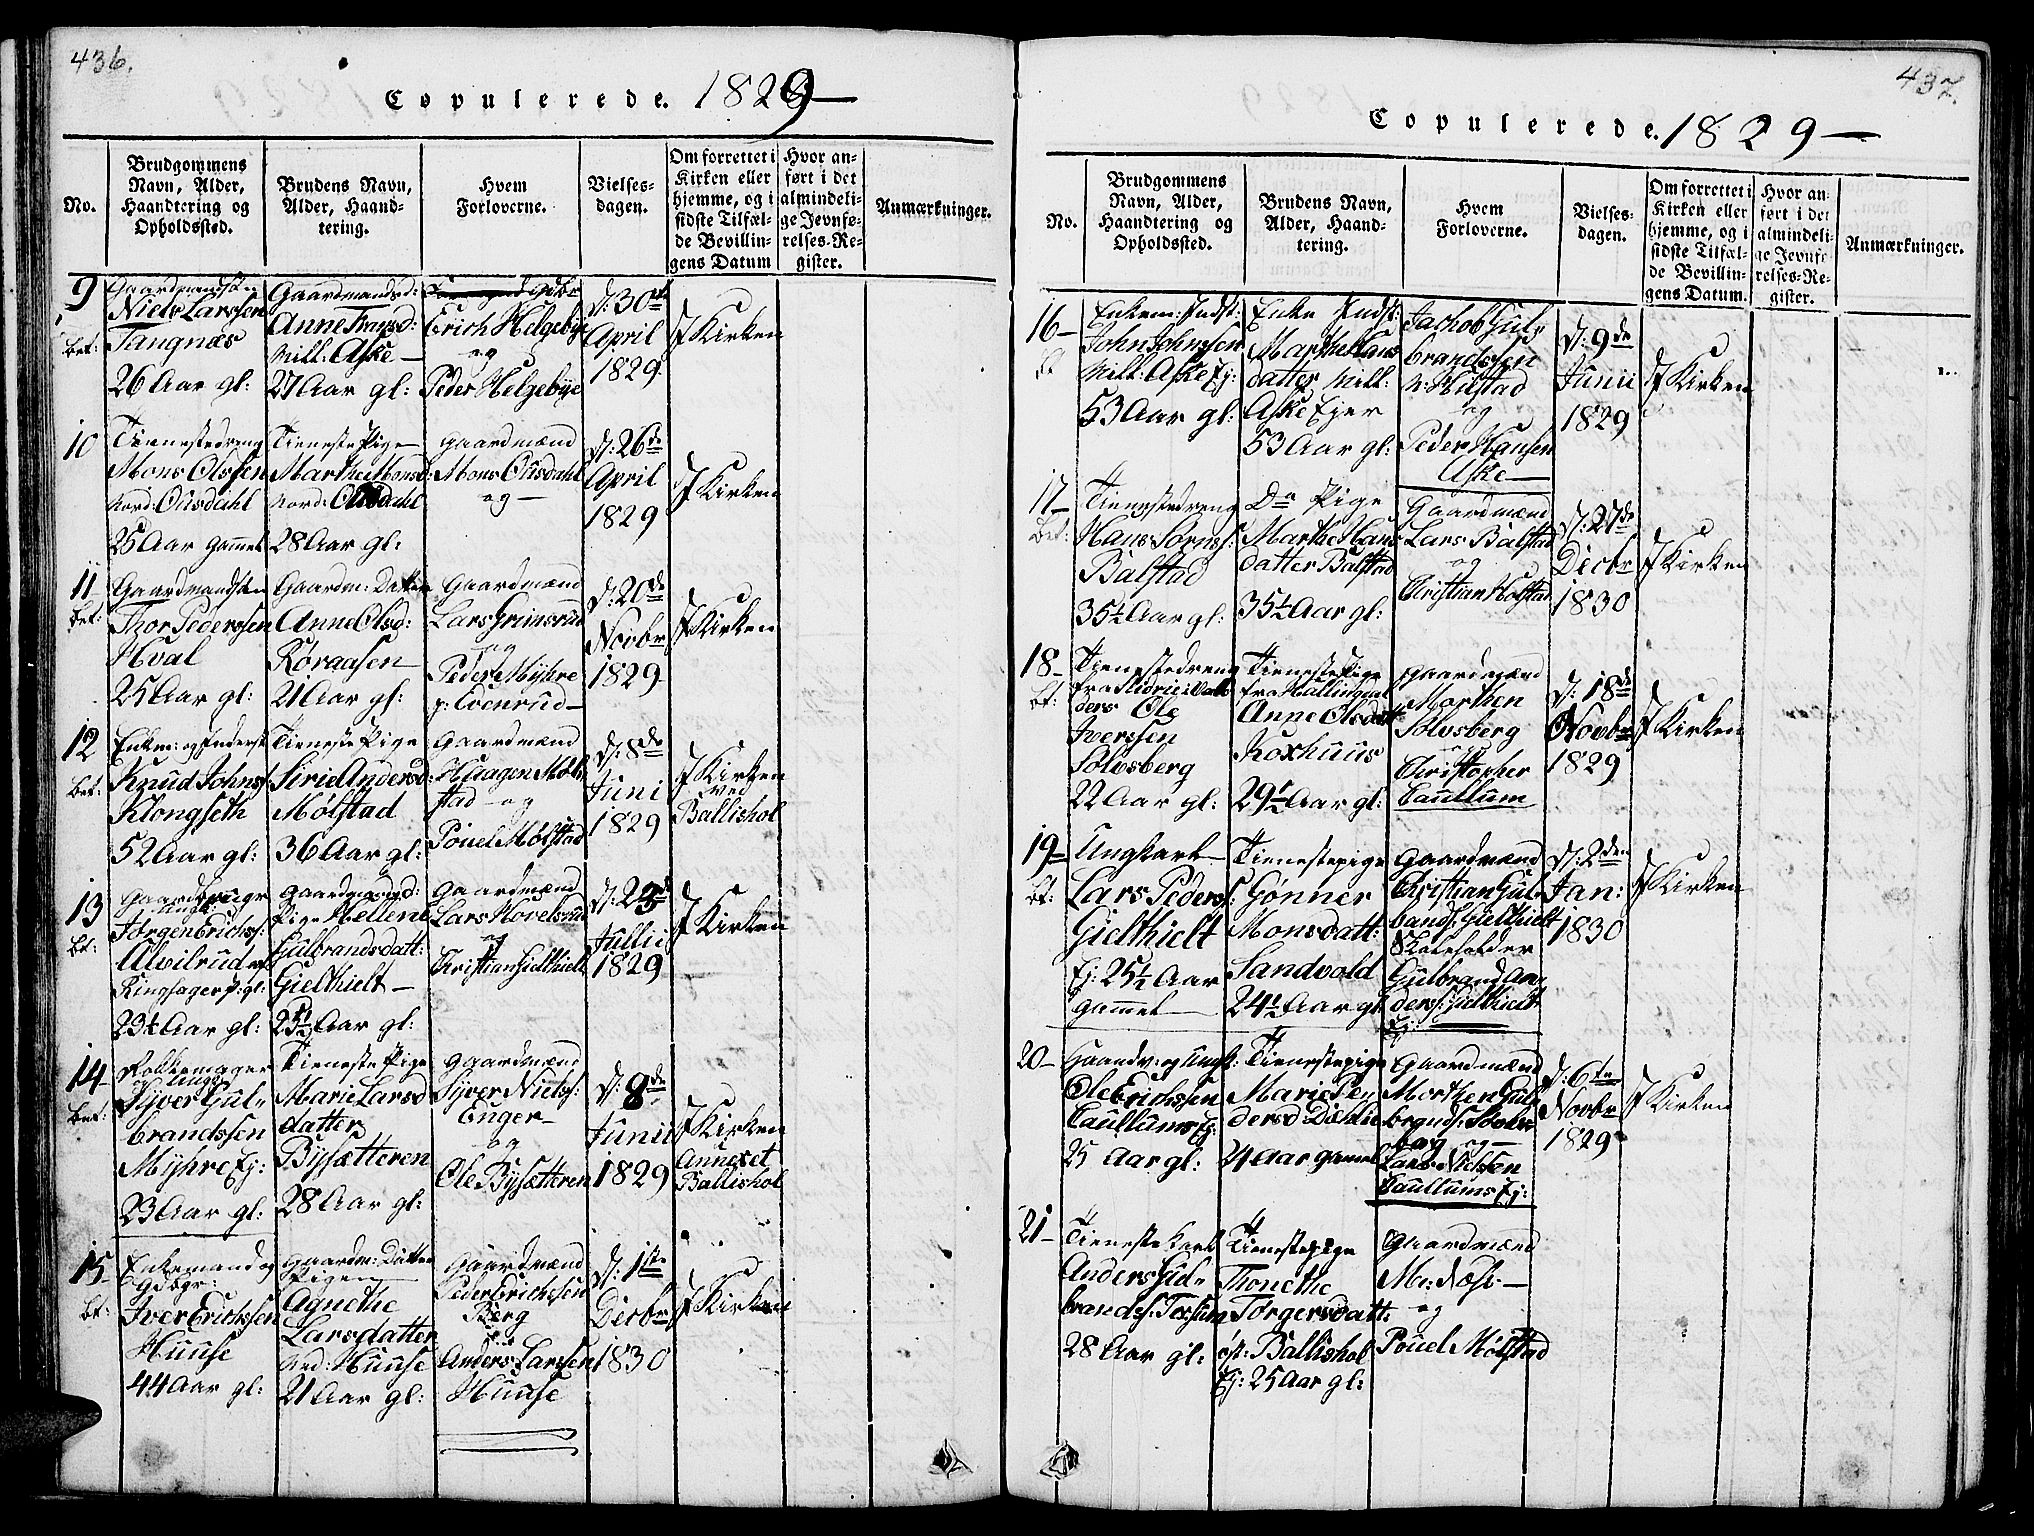 436.
Copulerede. 1829
No.
Brudgommens
Navn, Alder,
Haandtering og
Opholdssted.
Brudens Navn,
Alder, Haand-
tering.
Hvem
Forloverne.
Vielses-
dagen.
Om forrettet i
Kirken eller
hjemme, og i
sidste Tilfæl-
de Bevillin-
gens Datum
Hvor an-
ført i det
almindeli-
ge Jevnfø-
relses-Re-
gister.
Anmærkninger.
9
bet:
Gaardmandsøn
Niels Larssen
Tangnæs
26 Aar gl:
Gaardmandsd:
Anne
Mill: Aske
27 Aar gl:
Erich Helgebye
og
Peder Helgebye
d: 30te
April
1829
I Kirken
10
Tienestedreng
Mons Olssen
Nord: Ousdahl
25 Aar gammel
TienestePige
Marthe Monsd:
Nord: Ousdahl
28 Aar gl:
Gaardmænd
Mons Ousdahl
og
d: 26de
April
1829
I Kirken
11
bet:
Gaardmandsøn
Thor Pederssen
Hval
25 Aar gl:
Gaardm: Datter
Anne Olsd:
Røraasen
21 Aar gl:
Gaardmænd
Lars Grimsrud
og
Peder Myhre
p: Evenrud
d: 20de
Novbr
1829
I Kirken
12
bet:
Enkm: og Inderst
Knud Johns:
Klongseth
52 Aar gl:
Tieneste Pige
Sirie Andersd:
Mølstad
36 Aar gl:
Gaardmænd
Haagen Møl-
stad og
Pouel Mølstad
d: 8de
Juni
1829
I Kirken
ved
Ballishol
13
bt:
Gaardbruger
Ungk:
Jørgen Erichs:
Alvilrud af
Ringsager p: gl:
23½ Aar gl:
Gaardmandsd:
Pige Hellene
Gulbrandsdatt:
Gielthielt
25½ Aar gl:
Gaardmænd
Lars Hovelsrud
og
Christian Gielthielt
Jullii
1829
I Kirken
14
bet:
Rokkemager
og Ungk:
Syver Gul-
brandssen
Myhre Ej:
23 Aar gl:
Tieneste Pige
Marie Larsd
datter
Bysætteren
28 Aar gl:
Gaardmænd
Syver Niels:
Enger
og
Ole Bysætteren
d: 8de
Junii
1829
I Kirken
Annexet
Ballishol
15
bt:
Enkemand og
Gdbgr:
Iver Erichssen
Huuse
44 Aar gl:
Gaardm: Datter
Pigen
Agnethe
Larsdatter
Ned: Huuse
21 Aar gl:
Gaardmænd
Peder Erichssen
Berg
og
Anders Larssen
Huuse
d: 1ste
Decbr
1830
I Kirken
437.
Copulerede. 1829
No.
Brudgommens
Navn, Alder,
Haandtering og
Opholdssted.
Brudens Navn,
Alder, Haand-
tering.
Hvem
Forloverne.
Vielses-
dagen.
Om forrettet i
Kirken eller
hjemme, og i
sidste Tilfæl-
de Bevillin-
gens Datum.
Hvor an-
ført i det
almindeli-
ge Jevnfø-
relses-Re-
gister.
Anmærkninger.
16
bt
Enkem: Indst:
John Johnssen
Mill: Aske Ej:
53 Aar gl:
Enke Indst:
Marthe Hans
datter Mill:
Aske Ejer
53 Aar gl:
Jachob Gul-
brandssen
N: Hulstad
og
Peder Hansen
Aske
d: 9de
Junii
1829
I Kirken
17
bet:
Tienestedreng
Hans Sørens:
Balstad
35½ Aar gl:
Do Pige
Marthe Hans
datter Balstad
35½ Aar gl:
Gaardmænd
Lars Balstad
og
Christian Holstad
d: 27de
Decbr
1830
I Kirken
18
bt:
Tienestedreng
fra
Ole
Iverssen
Solvsberg
22 Aar gl:
TienestePige
fra Hallingdal
Anne Olsdatt
Koxhuus
29½ Aar gl:
Gaardmænd
Morthen
Solvsberg
og
Christopher
Caullum
d: 18de
Novbr
1829
I Kirken
19
bt:
Ungkarl
Lars Peders:
Gielthielt
Ej: 25½ Aar
gammel
Tienestepige
Gønner
Monsdatt:
Sandvold
24½ Aar gl
Gaardmænd
Christian Gul-
bands: Gielthielt
Skoleholder
Gulbrand An-
ders: Gielthielt
Ej:
d: 2den
Jan:
1830
I Kirken
20
Gaardm: og Ungk:
Ole Erichssen
Caullums Ej:
25 Aar gl:
Tienestepige
Marie Pe-
dersd: Dæhlie
21 Aar gammel
Gaardmænd
Morthen Gul-
brands: Solvs-
berg og
Lars Nielssen
Caullums Ej:
d: 6te
Novbr
1829
I Kirken
21
Tieneste Karl
Anders Gul-
brands:
28 Aar gl:
Tienestepige
Thonethe
Torgersdatt:
øst: Ballishol
Ej: 25 Aar gl:
Gaardmænd
M: Næs:
og
Pouel Mølstad